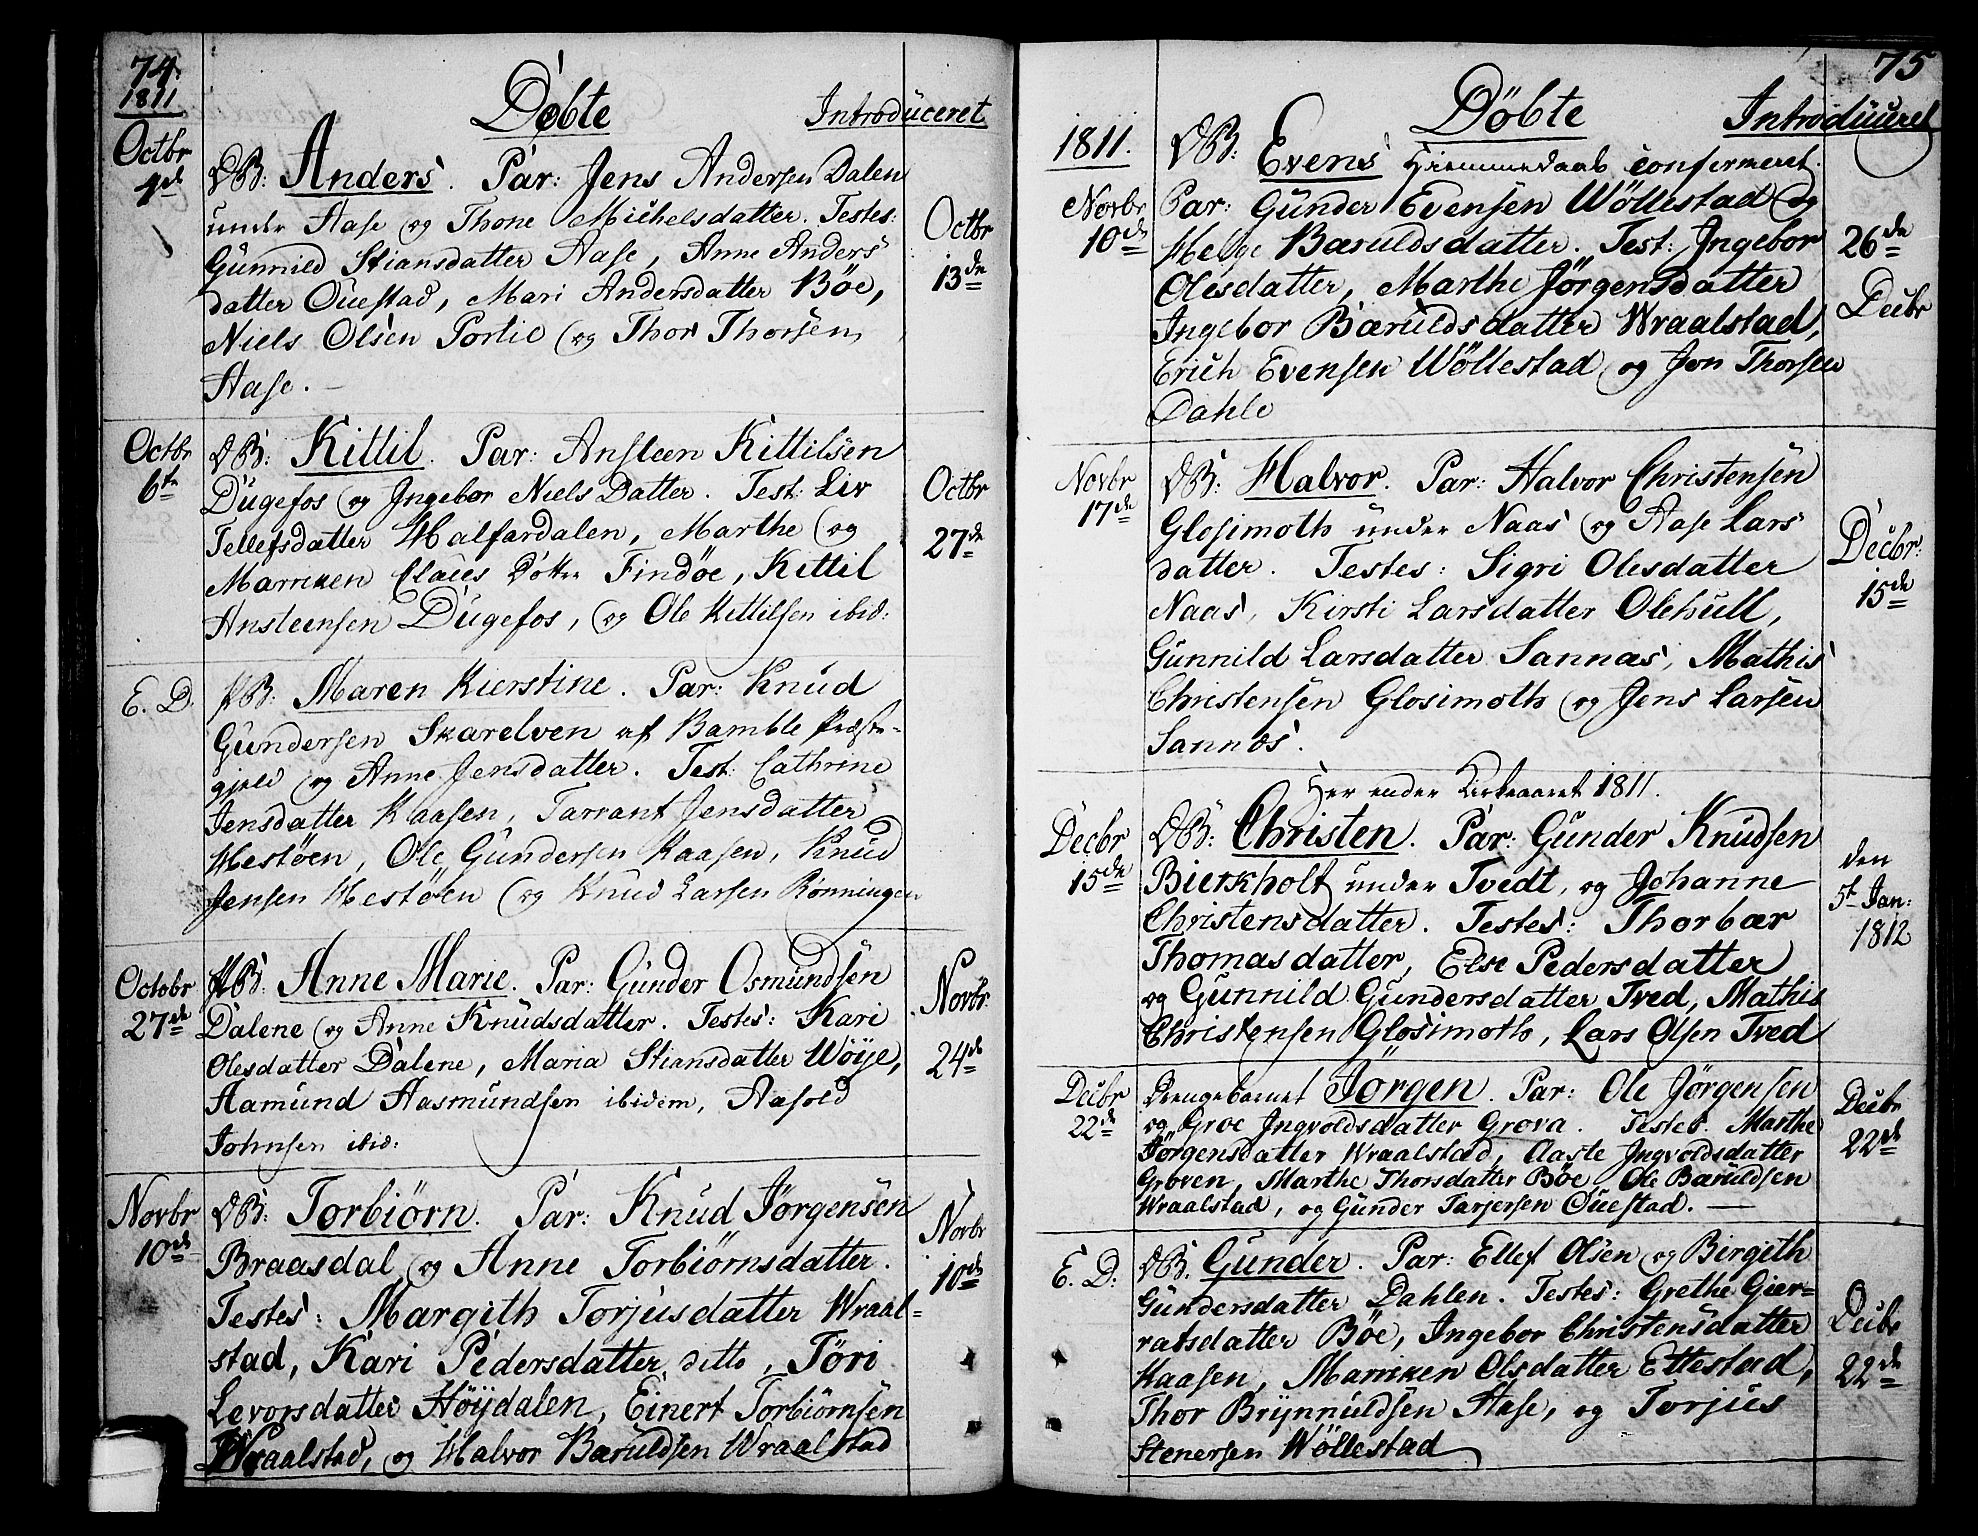 74.
1811
Døbte
Introduceret
Octbr
DB: Anders. Par: Jens Andersen Dalen
under Aase og Thone Michelsdatter. Testes:
Gunnild Stiansdatter Aase, Anne Anders
datter Ouestad, Mari Andersdatter Böe,
Niels Olsen Portie og Thor Thorsen
Aase.
Octbr
13de
Octbr
6te
DB: Kittil. Par: Ansteen Kittilsen
Dugefos og Ingebor Niels Datter. Test: Liv
Tellefsdatter Halfardalen, Marthe og
Marriken Claus Dötter Findöe, Kittil
Ansteensen Dugefos, og Ole Kittilsen ibid:
Octbr
27de
E. D.
PB: Maren Kierstine. Par: Knud
Gundersen Skarelven af Bamble Præste-
gjeld og Anne Jensdatter. Test: Cathrine
Jensdatter Kaasen, Tarrant Jensdatter
Hestöen, Ole Gundersen Kaasen, Knud
Jensen Hestöen og Knud Larsen Rönningen
Octobr
27de
PB: Anne Marie. Par: Gunder Osmundsen
Dalene og Anne Knudsdatter. Testes: Kari
Olesdatter Dalene, Maria Stiansdatter Wöye,
Aamund Aasmundsen ibidem, Aasold
Johnsen ibid:
Novbr
24de
Novbr
10de
DB: Torbiörn. Par: Knud Jörgensen
Braasdal og Anne Torbiörnsdatter.
Testes: Margith Torjusdatter Wraal-
stad, Kari Pedersdatter ditto, Töri
Levorsdatter Höijdalen, Einert Torbiörnsen
Wraalstad, og Halvor Bæruldsen Wraalstad
Novbr
10de
75
Döbte
Introduceret
1811.
Novbr
10de
DB: Evens Hiemmedaab confermeret.
Par: Gunder Evensen Wöllestad og
Helge Bæruldsdatter. Test: Ingebor
Olesdatter, Marthe Jörgensdatter
Ingebor Bæruldsdatter Wraalstad,
Erich Evensen Wöllestad og Jon Thorsen
Dahle
26de
Decbr
Novbr
17de
DB: Halvor. Par: Halvor Christensen
Glosimoth under Naas og Aase Lars
datter. Testes: Sigri Olesdatter
Naas, Kirsti Larsdatter Olehull,
Gunnild Larsdatter Sannas, Mathis
Christensen Glosimoth og Jens Larsen
Sannes.
Decbr:
15de
Her ender Kirkeaaret 1811.
Decbr
15de
DB: Christen. Par: Gunder Knudsen
Bierkholt under Tvedt, og Johanne
Christensdatter. Testes: Thorbær
Thomasdatter, Else Pedersdatter
og Gunnild Gundersdatter Tved, Mathis
Christensen Glosimoth, Lars Olsen Tved
den
5t Jan:
1812
Decbr
22de
Drengebarnet Jörgen. Par: Ole Jörgensen
og Groe Ingvoldsdatter Grova. Testes. Marthe
Jörgensdatter Wraalstad, Aaste Ingvoldsdatter
Groven, Marthe Thorsdatter Böe, Ole Bæruldsen
Wraalstad, og Gunder Tarjersen Ouestad.
Decbr
22de
E. D:
DB. Gunder. Par: Ellef Olsen og Birgith
Gundersdatter Dahlen. Testes: Grethe Gier-
ratsdatter Böe, Ingebor Christensdatter
Kaasen, Marriken Olsdatter Ettestad,
Thor Brynnuldsen Aase, og Torjus
Stenersen Wöllestad
Decbr
22de